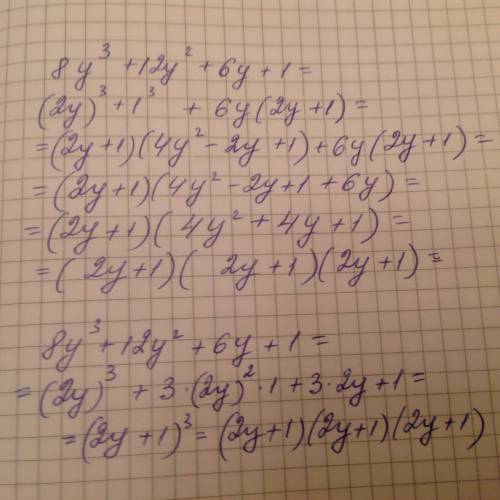 8y³ + 12y² + 6y + 1 =
(2y)³ + 1³ + 6y(2y+1) =
= (2y+1)(4y² - 2y + 1) + 6y(2y+1) =
= (2y+1)(4y² - 2y + 1 + 6y) =
= (2y+1)(4y² + 4y + 1) =
= (2y+1)(2y+1)(2y+1) =
8y³ + 12y² + 6y + 1 =
= (2y)³ + 3·(2y)²·1 + 3·2y + 1 =
= (2y+1)³ = (2y+1)(2y+1)(2y+1)